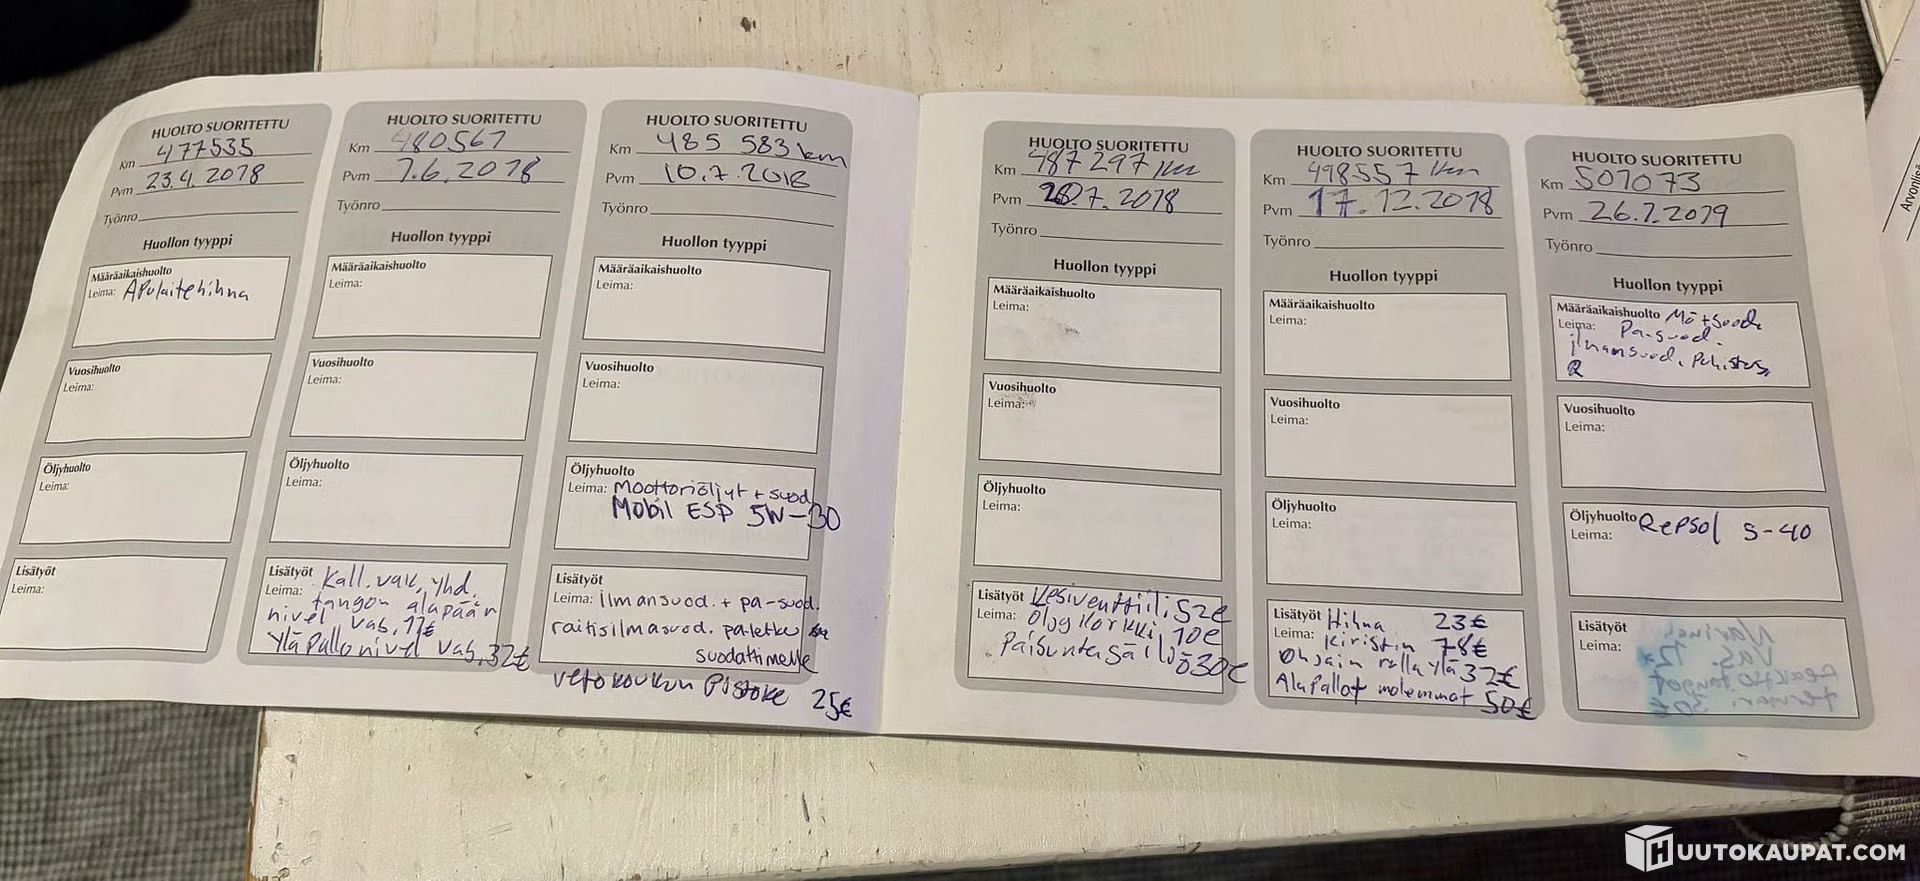 HUOLTO SUORITETTU
Km 477535
Pvm 23.4.2018
Työnro
Huollon tyyppi
Määräaikaishuolto
Leima: Apulaitehihna
Vuosihuolto
Leima:
Öljyhuolto
Leima:
Lisätyöt
Leima:
HUOLTO SUORITETTU
Km 480567
Pvm 7.6.2018
Työnro
Huollon tyyppi
Määräaikaishuolto
Leima:
Vuosihuolto
Leima:
Öljyhuolto
Leima:
Lisätyöt
Leima: Kall. vak. yhd.
tangon alapään
nivel vas. 17€
Ylä Pallonivel vas. 32€
HUOLTO SUORITETTU
Km 485 583 km
Pvm 10.7.2018
Työnro
Huollon tyyppi
Määräaikaishuolto
Leima:
Vuosihuolto
Leima:
Öljyhuolto
Leima: Moottoriöljyt + suod.
Mobil ESP 5W-30
Lisätyöt
Leima: ilmansuod. + pa-suod.
raitisilmasuod. pa letku
suodattimelle
vetokoukun Pistoke 25€
HUOLTO SUORITETTU
Km 487297 km
Pvm 20.7.2018
Työnro
Huollon tyyppi
Määräaikaishuolto
Leima:
Vuosihuolto
Leima:
Öljyhuolto
Leima:
Lisätyöt Vesiventtiili 52€
Leima: Öljy korkki 10€
Paisuntasäiliö 30€
HUOLTO SUORITETTU
Km 498557 km
Pvm 17.12.2018
Työnro
Huollon tyyppi
Määräaikaishuolto
Leima:
Vuosihuolto
Leima:
Öljyhuolto
Leima:
Lisätyöt Hihna 23€
Leima: Kiristin 78€
Ohjain rulla ylä 32€
Ala Pallot molemmat 50€
HUOLTO SUORITETTU
Km 501073
Pvm 26.2.2019
Työnro
Huollon tyyppi
Määräaikaishuolto Mö + suod.
Leima: Pa-suod.
ilmansuod. Puhistus
Vuosihuolto
Leima:
Öljyhuolto Repsol 5-40
Leima:
Lisätyöt
Leima:
HUUTOKAUPAT.COM